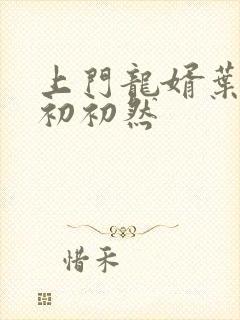 上門龍婿葉
初初然
惜禾